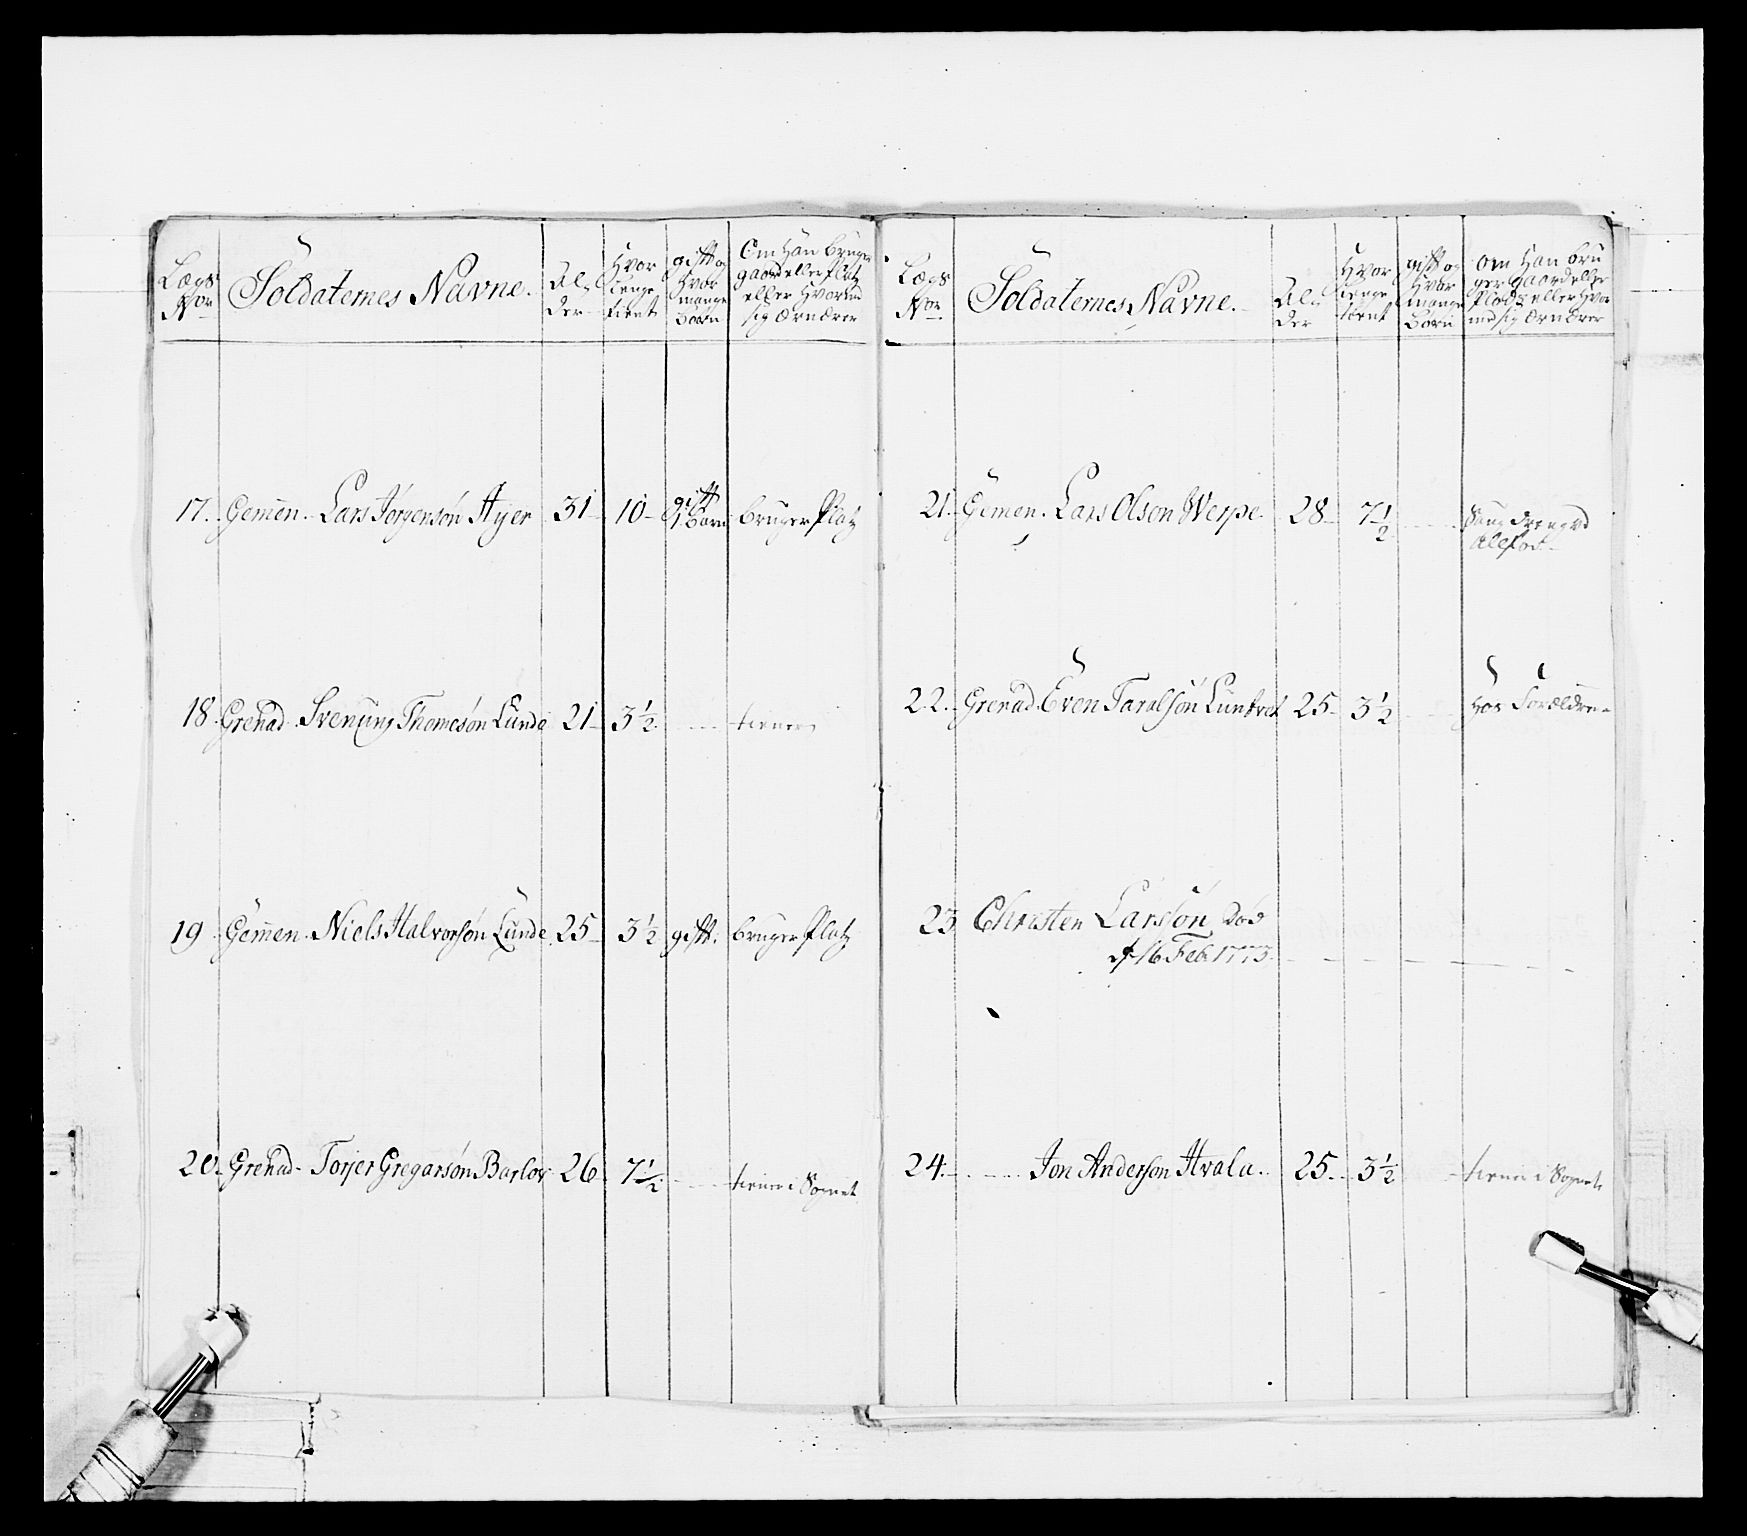 Lægs Nor
Soldaternes Navne.
Al, der
Hvor lenge tient
gift og Hvor mange Børn
Om Han bruger gaard eller Platz eller Hvormed sig ærnærer
17. Gemen. Lars Jørgensøn Ayer 31 10 gift 1 Barn bruger Platz
18 Grenad. Svenung Thomesøn Lunde 21 3 1/2 tiener
19 Gemen. Niels Halvorsøn Lunde 25 3 1/2 gift. bruger Platz
20. Grenad. Torjer Gregarsøn Barlov 26 7 1/2 tiener i Sognet
Lægs Nor
Soldaternes Navne.
Al, der
Hvor lenge tient
gift og Hvor mange Børn
om Han bruger gaard eller Plads eller Hvor med sig ærnærer
21. Gemen. Lars Olson Werpe 28 7 1/2
22. Grenad. Even Taralsøn Lundret 25 3 1/2 Hos Forældrene
23 Christen Larssøn Død
d 16 Feb 1773
24. Jon Anderson Hvala. 25. 3 1/2 tiener i Sognet